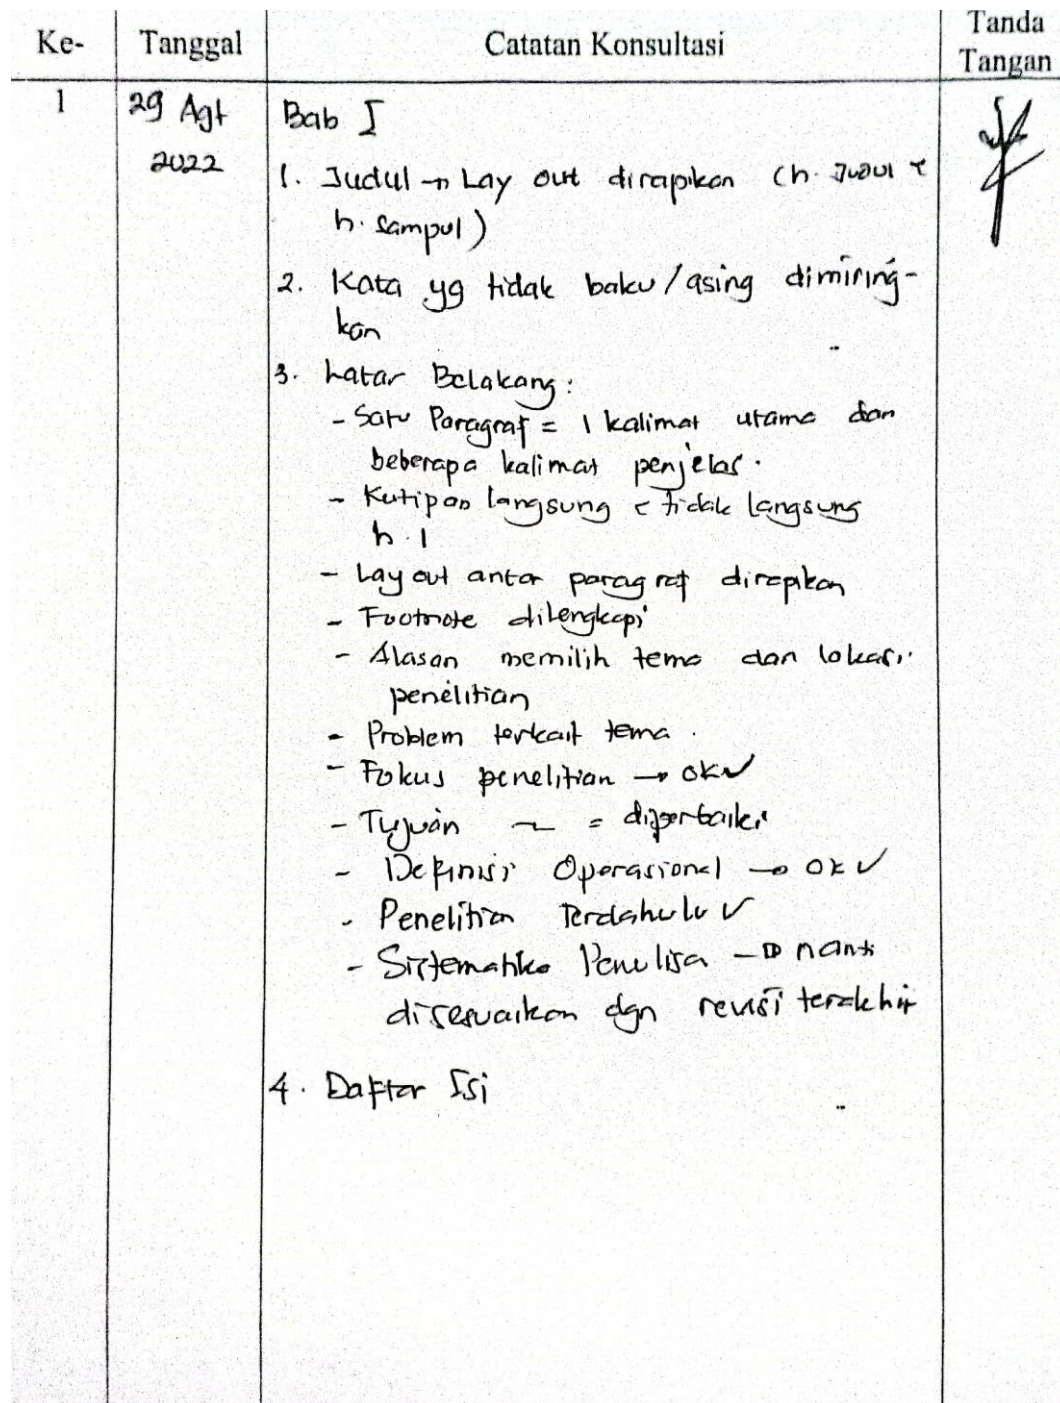 Ke- Tanggal Catatan Konsultasi Tanda Tangan
1 29 Agt 2022 Bab I
1. Judul → Lay out dirapikan (h. Judul &
h. sampul)
2. Kata yg tidak baku/asing dimiring-
kan
3. Latar Belakang:
- Satu Paragraf = 1 kalimat utama dan
beberapa kalimat penjelas.
- Kutipan langsung & tidak langsung
h. 1
- Lay out antar paragraf dirapikan
- Footnote dilengkapi
- Alasan memilih tema dan lokasi
penelitian
- Problem terkait tema.
- Fokus penelitian → ok ✓
- Tujuan ~ = diperbaiki
- Definisi Operasional → ok ✓
- Penelitian Terdahulu ✓
- Sistematika Penulisa → nanti
disesuaikan dgn revisi terakhir
4. Daftar Isi